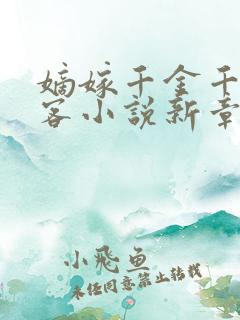 嫡嫁千金千
客小說新章
小飛魚
未經同意禁止转载